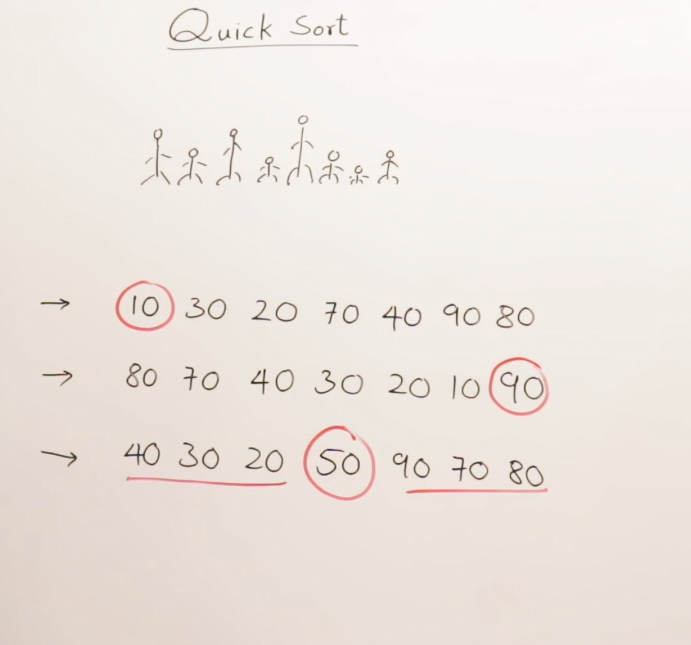 Quick Sort
→ 10 30 20 70 40 90 80
→ 80 70 40 30 20 10 90
→ 40 30 20 50 90 70 80